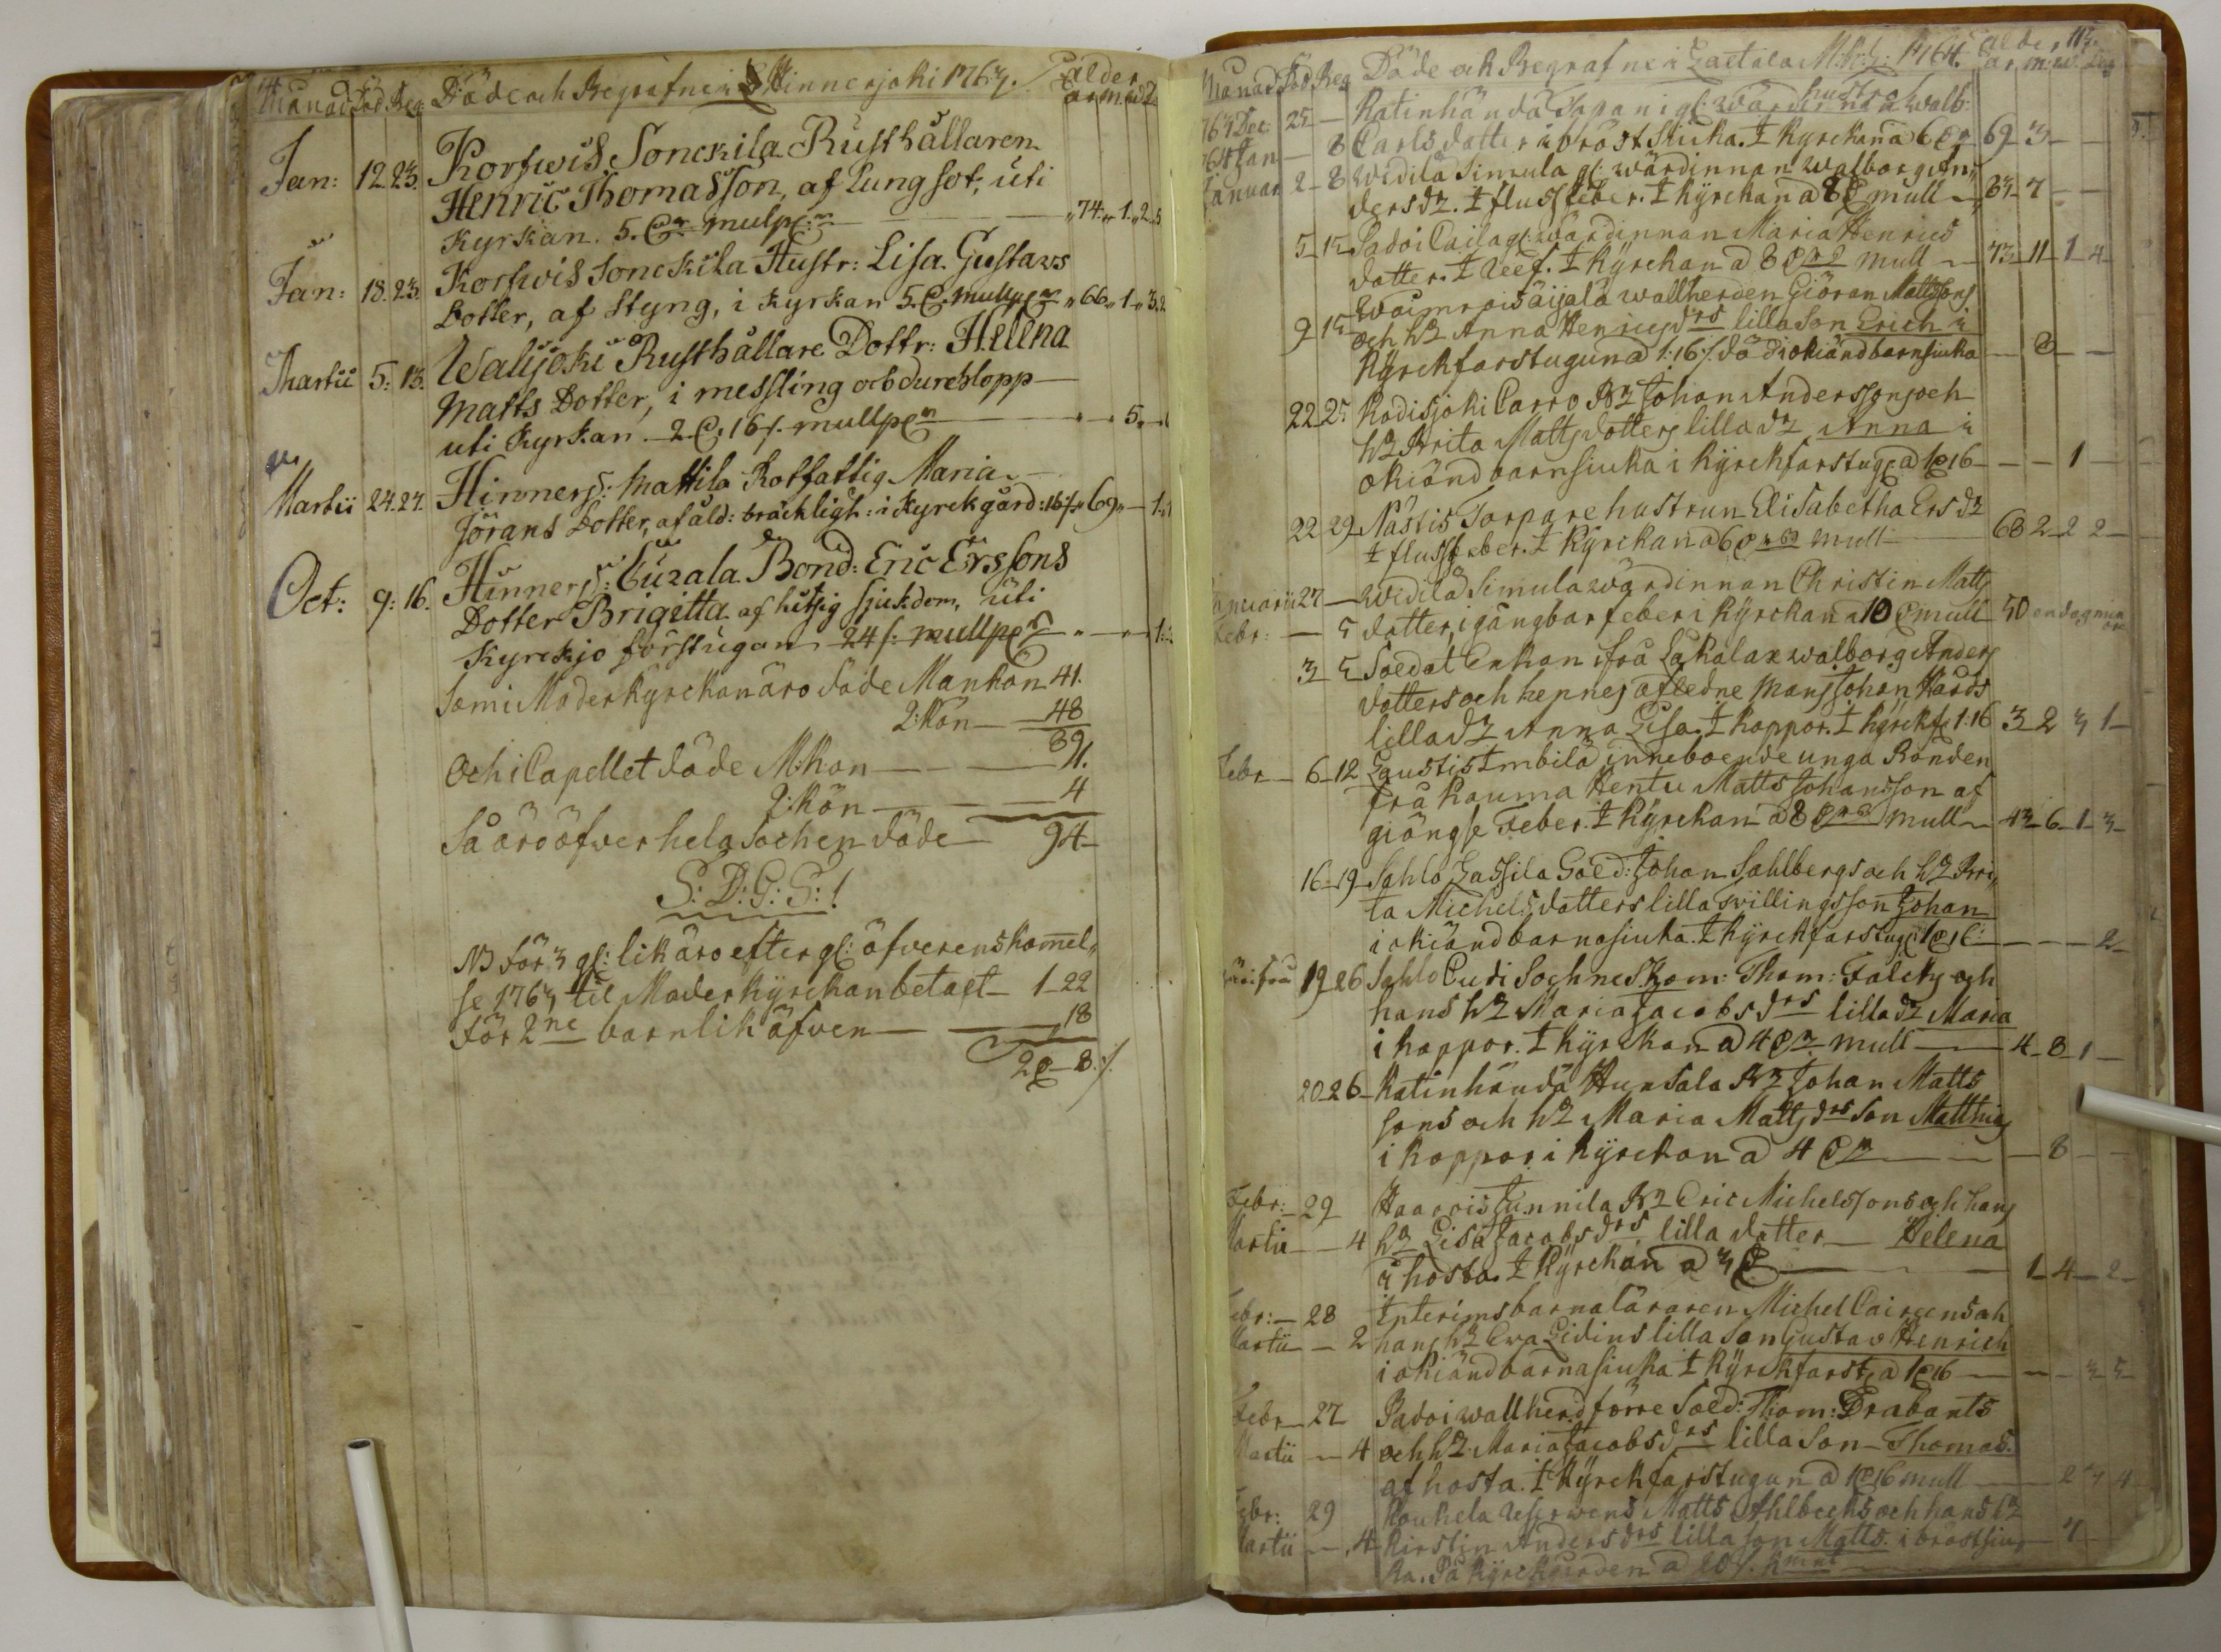 Månad Död Beg: Döde och Begrafne i Hinnerjoki 1763. ålder
Jan: 12. 23. Korfwis Sonckila Rusthållaren
Henric Thomasson, af Lungsot, uti
Kyrkan. 5. mulp 74. 1. 2.
Jan: 18. 23. Korfwis Sonckila Hustr: Lisa Gustavs
Dotter, af Styng, i Kyrkan 5. mullp 66. 1. 3.
Martii 5. 13. Walijoki Rusthållare Dottr: Hellna
Matts Dotter, i messling och durchlopp
uti Kyrkan. 2. 16 mullp 5.
Martii 24. 27. Hinners: Mattila Rotfattig Maria
Jörans Dotter, af åld: bräckligh: i Kyrckgård: 16 69 1.
Oct: 9. 16. Hinners: Bond: Eric Ersons
Dotter Brigitta af hitsig sjukdom, uti
Kyrckjo förstugan 24 mullp 1.
Som i Moderkyrckan äro döde Mankön 41.
2: Kön 48
89.
Och i Capellet döde M:kön 1.
2: Kön 4
Så äro öfver hela Sochen döde 94
S: D: G: S: !
NB för 3 gl: lik äro efter gl: öfverenskomel-
se 1763 til Moderkyrckan betalt 1-22
för 2ne barnlik äfven 18
2-8
Månad Död Beg Döde och Begrafne i Laitala M:k: 1764. ålder 113.
år m. w. dag
1763 Dec 25 Katinhändä Sapani gl: wärdinna hustro walb:
1764 Jan 8 Carls dotter i bröstsiuka. I Kyrckan a 6 69 3
Januar 2 8 Widilä Simula gl: wärdinnan Walborg An-
ders dr. I flussfeber. I Kyrckan a 8 mull 63 7
5 15 Padoi Caila gl: wärdinnan Maria Henrics
dotter. I Kyrckan a 8 mull 73 11 1 4
9 15 äijälä wallherden Giöran Mattsons
och h: Anna Henrics drs lilla Son Erich i
Kyrckfarstugun a 1:16 död i okiänd barnsiuka 8
22 25 Kodisjoki Carro Johan Andersons och
h: Brita Matts dotters lilla dr Anna i
okiänd barnsiuka i Kyrckfarstug a 1 16 1
22 29 Nästis Torpare hustrun Elisabetha Ers dr
I flussfeber. I Kyrckan a 6 mull 68 2 2 2
Januarii 27 Widilä Simula wärdinnan Christin Matts
Febr: 5 dotter, i gångbar feber i Kyrckan a 10 mull 50
3 5 Soldat Enkan frå Lakalax Walborg Anders
dotters och hennes afledne Mans Johan Hårds
lilla dr Anna Lisa. I koppor. I Kyrckf: 1:16 3 2 3 1
Febr 6 12 Laustis Imbilä inneboende unga Bonden
frå Rauma Hentu Matts Johansson af
giängse Feber. I Kyrckan a 8 mull 43 6 1 3
16 19 Sahlo Lassila Sold: Johan Sahlbergs och h: Bri-
ta Michels dotters lilla twillingsson Johan
i okiänd barnasiuka. I Kyrckfarstug 1 16 2
19 26 Sahlo Outi Sochne Skom: Thom: Falcks och
hans h: Maria Jacobs drs lilla dr Maria
i koppor. I Kyrckan a 4 mull 4 8 1
20 26 Katinhändä Hunsala Johan Matts
sons och h: Maria Matts drs Son Matthias
i koppor i Kyrckan a 4 8
Febr: 29 Haarois Junnila Eric Michelssons och hans
Martii 4 h: Lisa Jacobs drs lilla dotter Helena
i hosta. I Kyrckan a 3 1 4 2
Febr: 28 Interims barnaläraren Michel Cairenius och
Martii 2 hans h: Eva Lidins lilla Son Gustav Henrich
i okiänd barnasiuka I Kyrckfarst a 1 16 3 5
Febr 27 Padoi wallherd förre Sold: Thom: Drabants
Martii 4 och h: Maria Jacobs drs lilla Son Thomas.
af hosta. I Kyrckfarstugun a 1 16 mull 2 3 4
Febr: 29 Koukela Matts Ahlbecks och hans h:
Martii 4 Kirstin Anders drs lilla son Matts. i bröstsiu-
ka. På Kyrckgården a 20